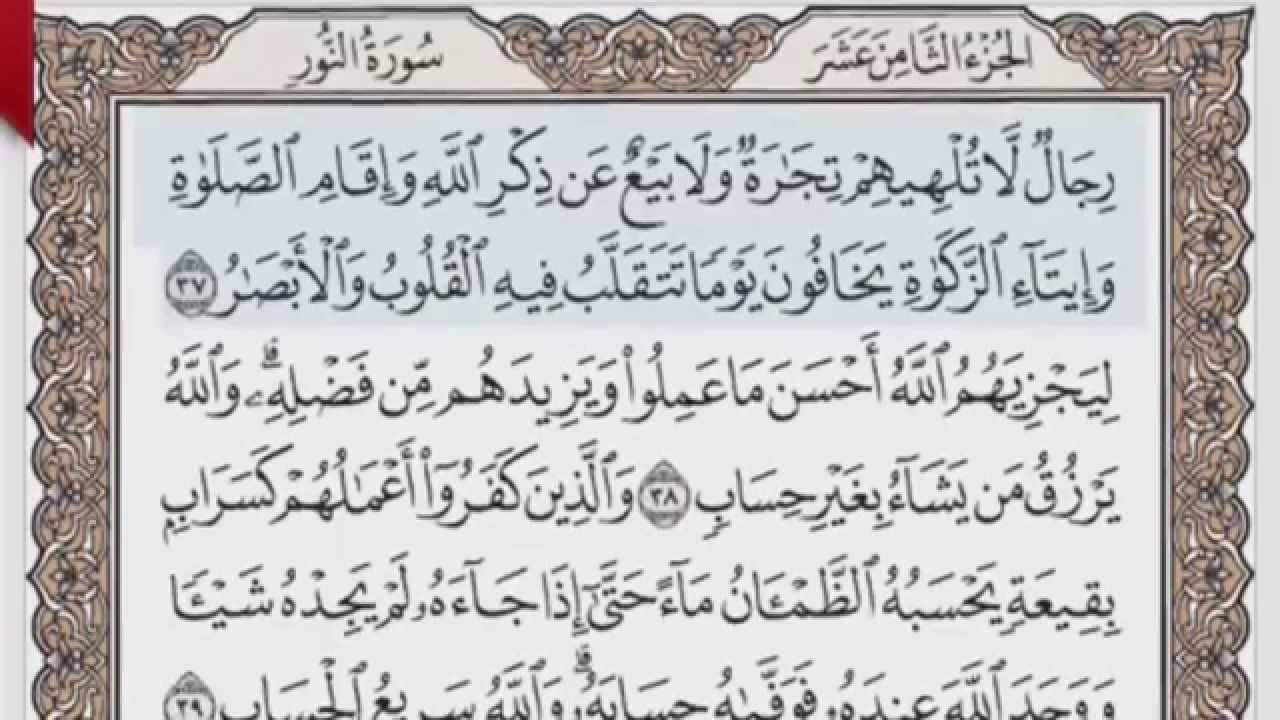 الجُزْءُ الثَّامِنَ عَشَرَ
سُورَةُ النُّورِ
رِجَالٌ لَّا تُلْهِيهِمْ تِجَٰرَةٌ وَلَا بَيْعٌ عَن ذِكْرِ ٱللَّهِ وَإِقَامِ ٱلصَّلَوٰةِ
وَإِيتَآءِ ٱلزَّكَوٰةِ يَخَافُونَ يَوْمًا تَتَقَلَّبُ فِيهِ ٱلْقُلُوبُ وَٱلْأَبْصَٰرُ ٣٧
لِيَجْزِيَهُمُ ٱللَّهُ أَحْسَنَ مَا عَمِلُوا۟ وَيَزِيدَهُم مِّن فَضْلِهِۦ ۗ وَٱللَّهُ
يَرْزُقُ مَن يَشَآءُ بِغَيْرِ حِسَابٍ ٣٨ وَٱلَّذِينَ كَفَرُوٓا۟ أَعْمَٰلُهُمْ كَسَرَابٍۭ
بِقِيعَةٍ يَحْسَبُهُ ٱلظَّمْـَٔانُ مَآءً حَتَّىٰٓ إِذَا جَآءَهُۥ لَمْ يَجِدْهُ شَيْـًٔا
وَوَجَدَ ٱللَّهَ عِندَهُۥ فَوَفَّىٰهُ حِسَابَهُۥ ۗ وَٱللَّهُ سَرِيعُ ٱلْحِسَابِ ٣٩